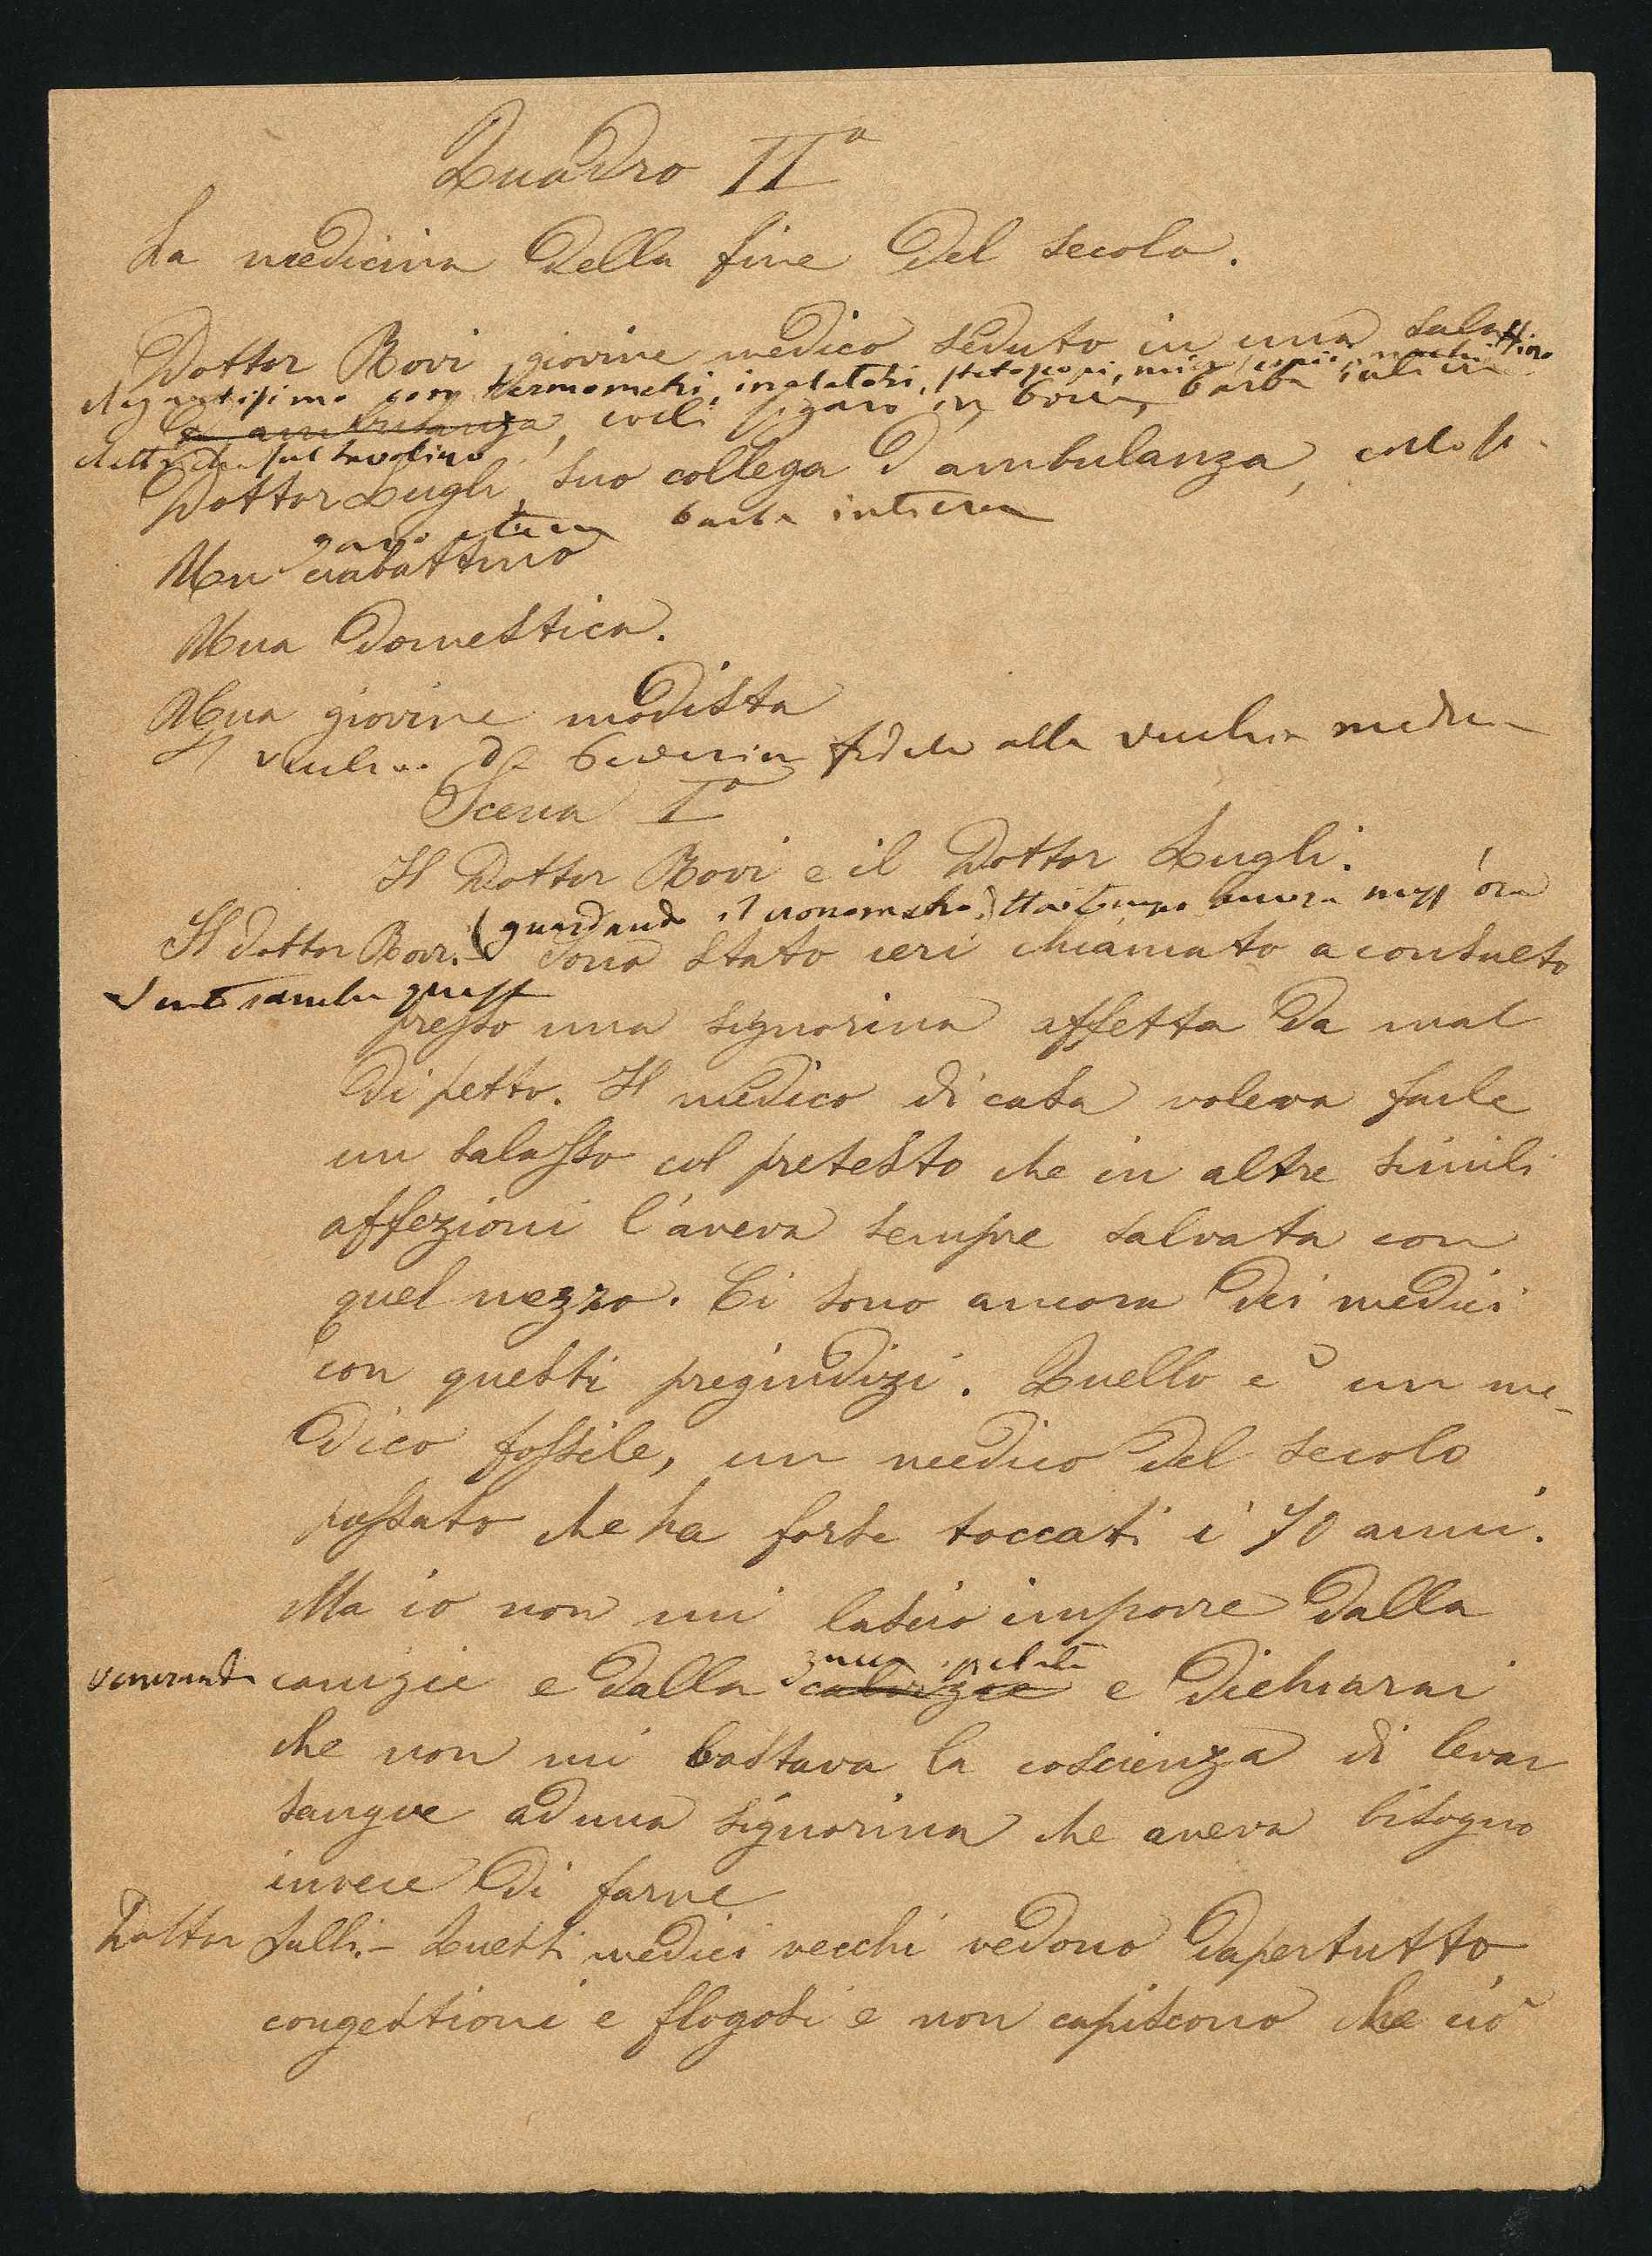 Quadro IIº
La medicina della fine del secolo.
Dottor Bovi, giovine medico seduto in una salottino
elegantissimo con termometri, inalatori, stetoscopi, microscopio, macchi
d'ambulanza, col sigaro in bocca, barba intiera
elettrica sul tavolino
Dottor Lugli, suo collega d'ambulanza, collo si-
garo barba intiera
Un ciabattino
Una domestica.
Una giovine modista
Il vecchio Dr fedele alla vecchia medicina
Scena Iª
Il Dottor Bovi e il Dottor Lugli.
(guardando il cronometro) ancora mezz'ora
Il dottor Bovi. - Sono stato ieri chiamato a consulto
presso una signorina affetta da mal
di petto. Il medico di casa voleva farle
un salasso col pretesto che in altre simili
affezioni l'aveva sempre salvata con
quel mezzo. Ci sono ancora dei medici
con questi pregiudizi. Quello è un me-
dico fossile, un medico del secolo
passato che ha forse toccati i 70 anni.
Ma io non mi lascio imporre dalla
zucca pelata
veneranda canizie e dalla calvizie e dichiarai
che non mi bastava la coscienza di levar
sangue ad una signorina che aveva bisogno
invece di farne
Dottor Lulli. - Questi medici vecchi vedono dapertutto
congestioni e flogosi e non capiscono che ciò